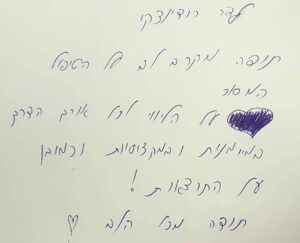 לעדר רודינצקי
תודה מקרב לב על הטיפול
המסור
על הליווי לכל אורך הדרך
במיומנות ובמקצועיות וכמובן
על התוצאות!
תודה מכל הלב ♡